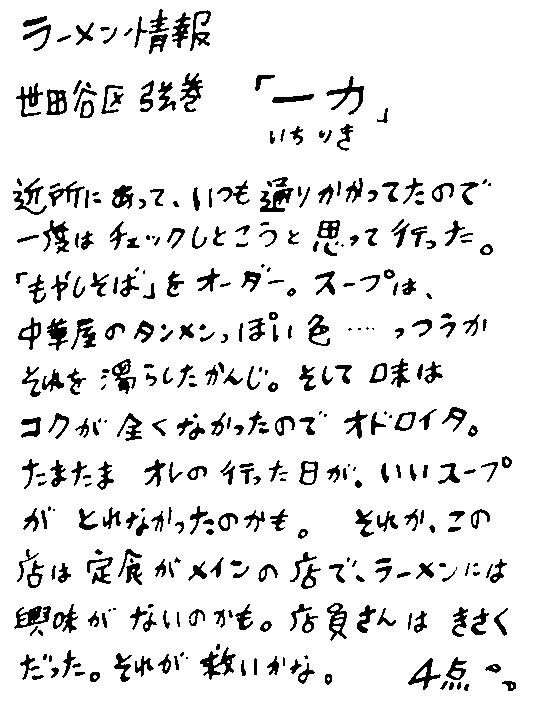 ラーメン情報
世田谷区 弦巻 「一力」
いちりき
近所にあって、いつも通りかかってたので
一度はチェックしとこうと思って行った。
「もやしそば」をオーダー。スープは、
中華屋のタンメンっぽい色‥‥っつうか
それを濁らしたかんじ。そして味は
コクが全くなかったのでオドロイタ。
たまたま オレの行った日が、いいスープ
が とれなかったのかも。 それか、この
店は定食がメインの店で、ラーメンには
興味がないのかも。店員さんは きさく
だった。それが救いかな。 4点。